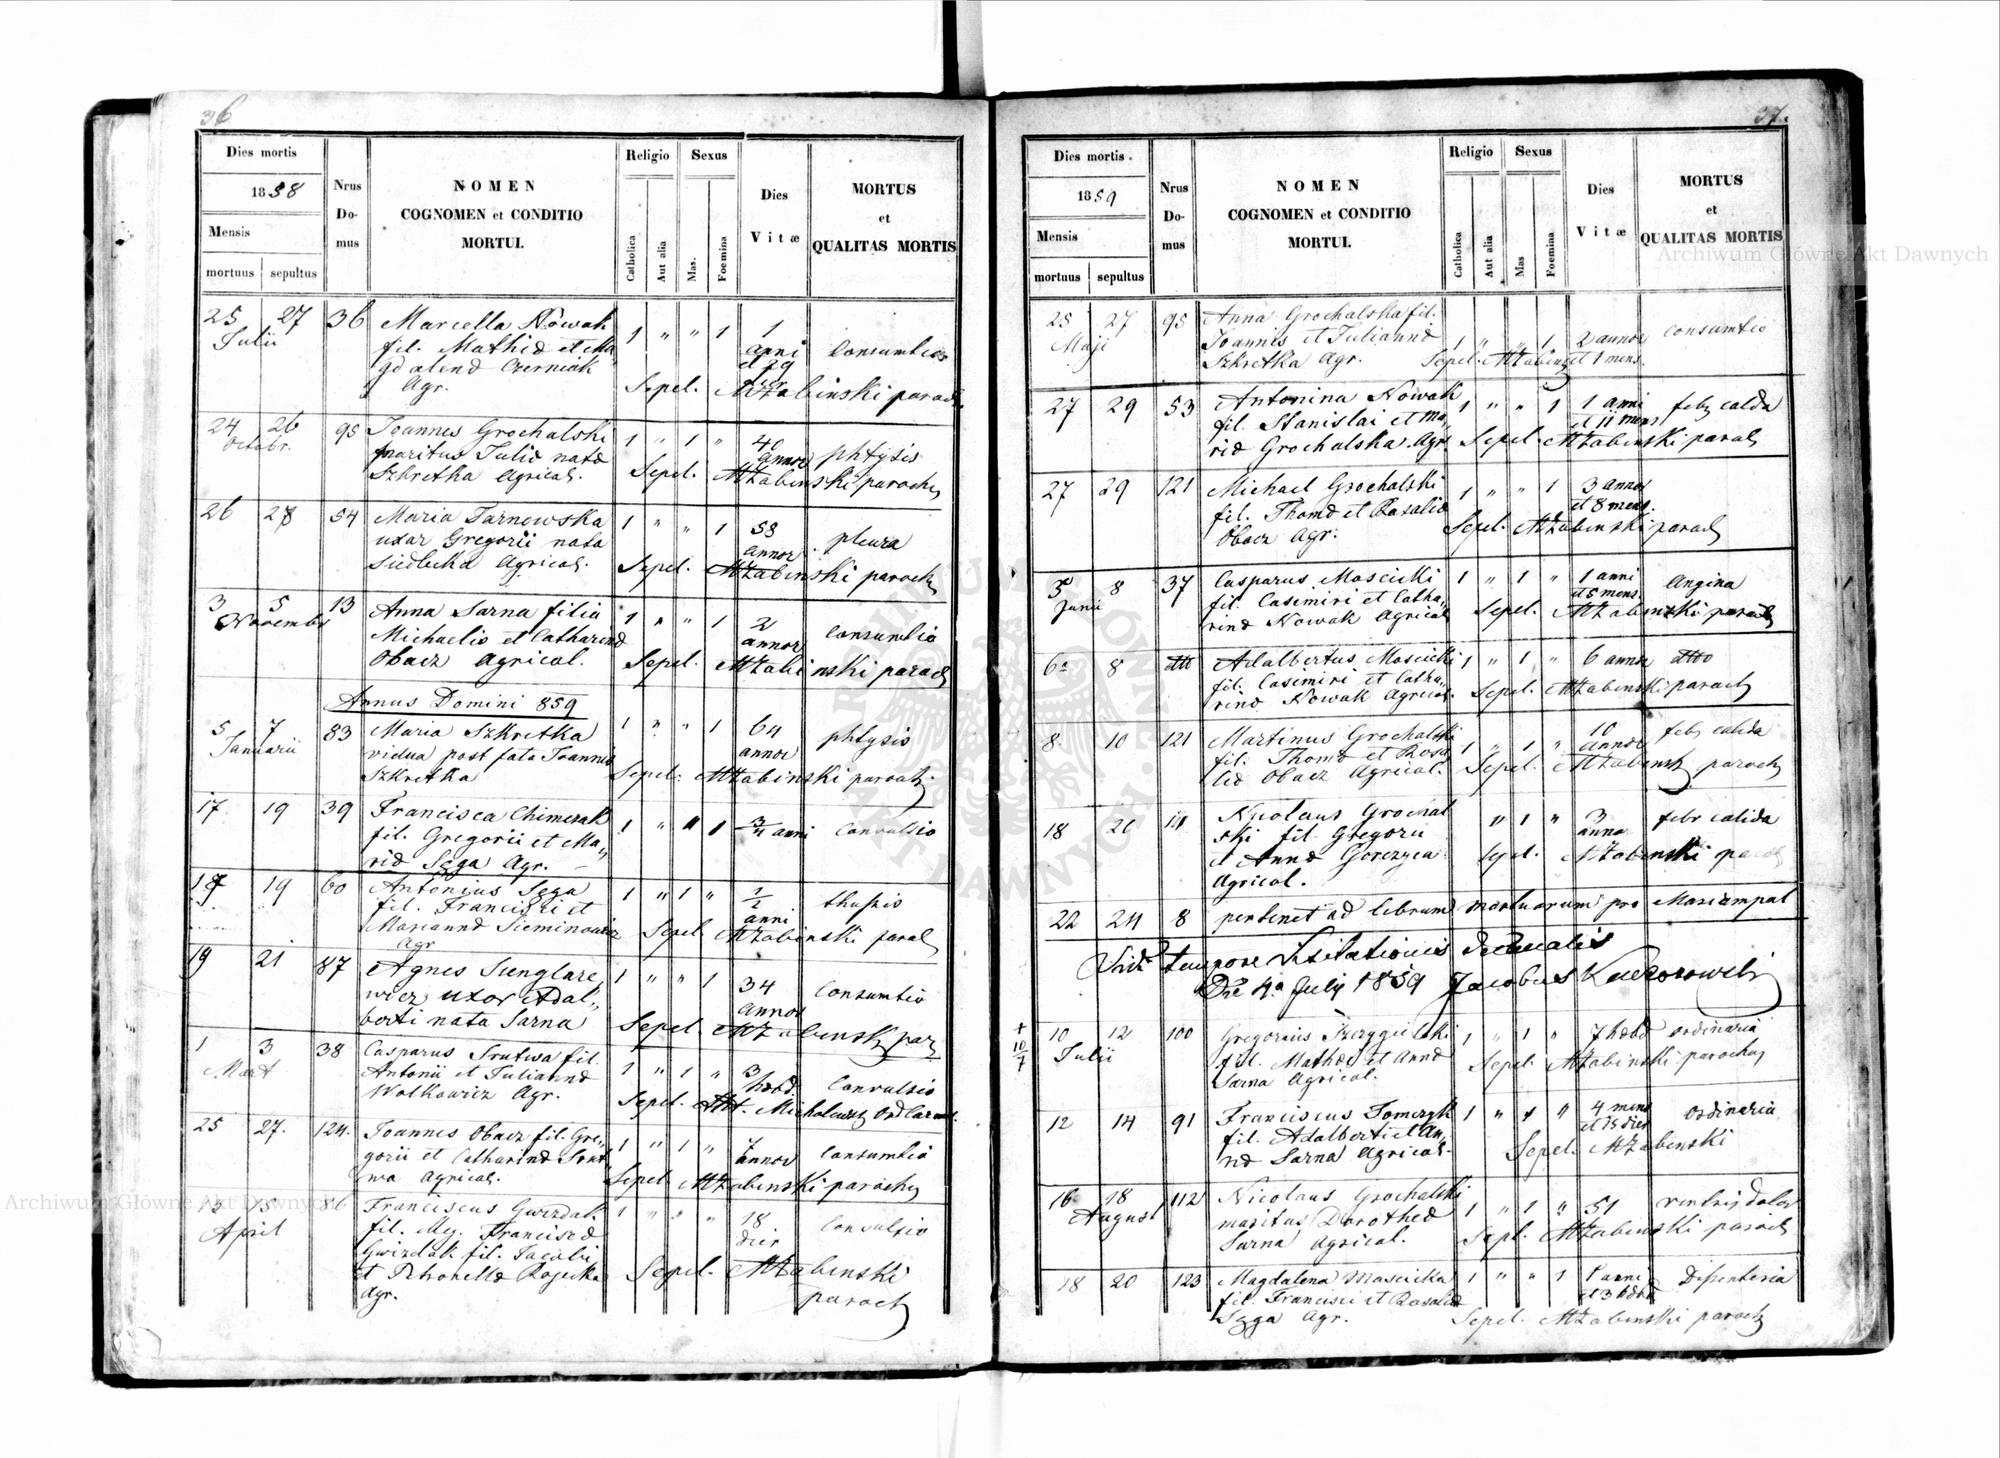 36
Dies mortis
1858
Mensis
mortuus sepultus
Nrus Do- mus
NOMEN
COGNOMEN et CONDITIO
MORTUI.
Religio
Catholica Aut alia
Sexus
Mas. Foemina
Dies
Vitæ
MORTUS
et
QUALITAS MORTIS
25 27 36 Marcella Nowak 1 " " 1 1
Julii fil. Mathiæ et Ma, anni Consumtio
gdalenæ Czerniak et 29
Agr. Sepel. MŻabinski paroch
24 26 95 Joannes Grochalski 1 " 1 " 40
Octobr. maritus Juliæ natæ annor phtysis
Szkretka Agricol. Sepel. MŻabinski parochus
26 28 54 Maria Tarnowska 1 " " 1 58
uxor Gregorii nata annor pleura
Siedlecka Agricol. Sepel. MŻabinski paroch
3 5 13 Anna Sarna filia 1 " " 1 2
Novembr Michaelis et Catharinæ annor Consumtio
Obacz Agricol. Sepel. MŻabinski paroch
Annus Domini 859
5 7 83 Maria Szkretka 1 " " 1 64
Januarii vidua post fata Joannis annor phtysis
Szkretka Sepel. MŻabinski paroch
17 19 39 Francisca Chimerak
fil. Gregorii et Ma, 1 " " 1 3/4 anni Convulsio
riæ Sęga Agr.
18 19 60 Antonius Sęga 1 " 1 " 1/2
fil. Francisci et anni
Mariannæ Sieminowicz Sepel MŻabinski paroch
Agr
19 21 87 Agnes Sunglare, 1 " " 1 34 Consumtio
wicz uxor Adal, annor
berti nata Sarna Sepel MŻabinski par
1 3 38 Casparus Srutwa fil.
Mart Antonii et Juliannæ 1 " 1 " 3 hebd. Convulsio
Wolkowicz Agr. Sepel.
25 27. 124. Joannes Obacz fil. Gre, 1 " 1 " 7
gorii et Catharinæ Srut annor Consumtio
wa Agricol. Sepel MŻabinski parochus
13 15 86 Franciscus Gwizdak 1 " " " 18. Convulsio
April fil. Franciscæ dier
Gwizdak fil. Jacobi
et Petronellæ Rajecka Sepel. MŻabinski
Agr. paroch
37.
Dies mortis.
1859
Mensis
mortuus sepultus
Nrus Do- mus
NOMEN
COGNOMEN et CONDITIO
MORTUI.
Religio
Catholica Aut alia
Sexus
Mas Foemina
Dies
Vitæ
MORTUS
et
QUALITAS MORTIS
25 27 95 Anna Grochalska fil.
Maji Joannis et Juliannæ 1 " " 1 2 annor Consumtio
Szkretka Agr. Sepel. MŻabins et 1 mens.
27 29 53 Antonina Nowak 1 " " 1 1 anni feb, calda
fil. Stanislai et Ma, et 11 mens
riæ Grochalska. Agr. Sepel MŻabinski paroch
27 29 121 Michael Grochalski 1 " " 1 3 annor
fil. Thomæ et Rosaliæ et 8 mens.
Obacz Agr. Sepel. MŻabinski paroch
5 8 37 Casparus Moscicki 1 " 1 " 1 anni Angina
Junii fil. Casimiri et Catha, et 5 mens.
rinæ Nowak Agricol Sepel. MŻabinski paroch
6 8 dtto Adalbertus Moscicki 1 " 1 " 6 annor dtto
fil. Casimiri et Catha,
rinæ Nowak Agricol. Sepel. MŻabinski paroch
8 10 121 Martinus Grochalski 10 feb, calida
fil. Thomæ et Rosa 1 " 1 " annor
liæ Obacz Agricol. Sepel. MŻabinski paroch
18 20 Nicolaus Grochal " 1 " 3 febr calida
ski fil Gregorii anno
et Annæ Gorczyca Sepel. MŻabinski paroch
Agricol.
22 24 8 pertinet ad librum mortuorum pro Mariampol
Vidi tempore Visitationis Decanalis
Die 4a July 1859 Jacobus Kaczorowski
+
10/7
10 12 100 Gregorius 1 " 1 " 7 hebd ordinaria
Julii fil. Mathei et Annæ
Sarna Agricol. Sepel. MŻabinski parochus
12 14 91 Franciscus Tomczyk 1 " 1 " 4 mens ordinaria
fil. Adalberti et An, et 15 dier
næ Sarna Agricol. Sepel. MŻabinski
16 18 112 Nicolaus Grochalski 1 " 1 " 51 ventris dolor
August maritus Dorotheæ
Sarna Agricol. Sepl. MŻabinski paroch
18 20 123 Magdalena Moscicka 1 " " 1 1 anni Dissenteria
fil. Francisci et Rosaliæ et 3 hebd
Sęga Agr. Sepel. MŻabinski paroch
Archiwum Główne Akt Dawnych
Archiwum Główne Akt Dawnych
ARCHIWUM GŁÓWNE AKT DAWNYCH